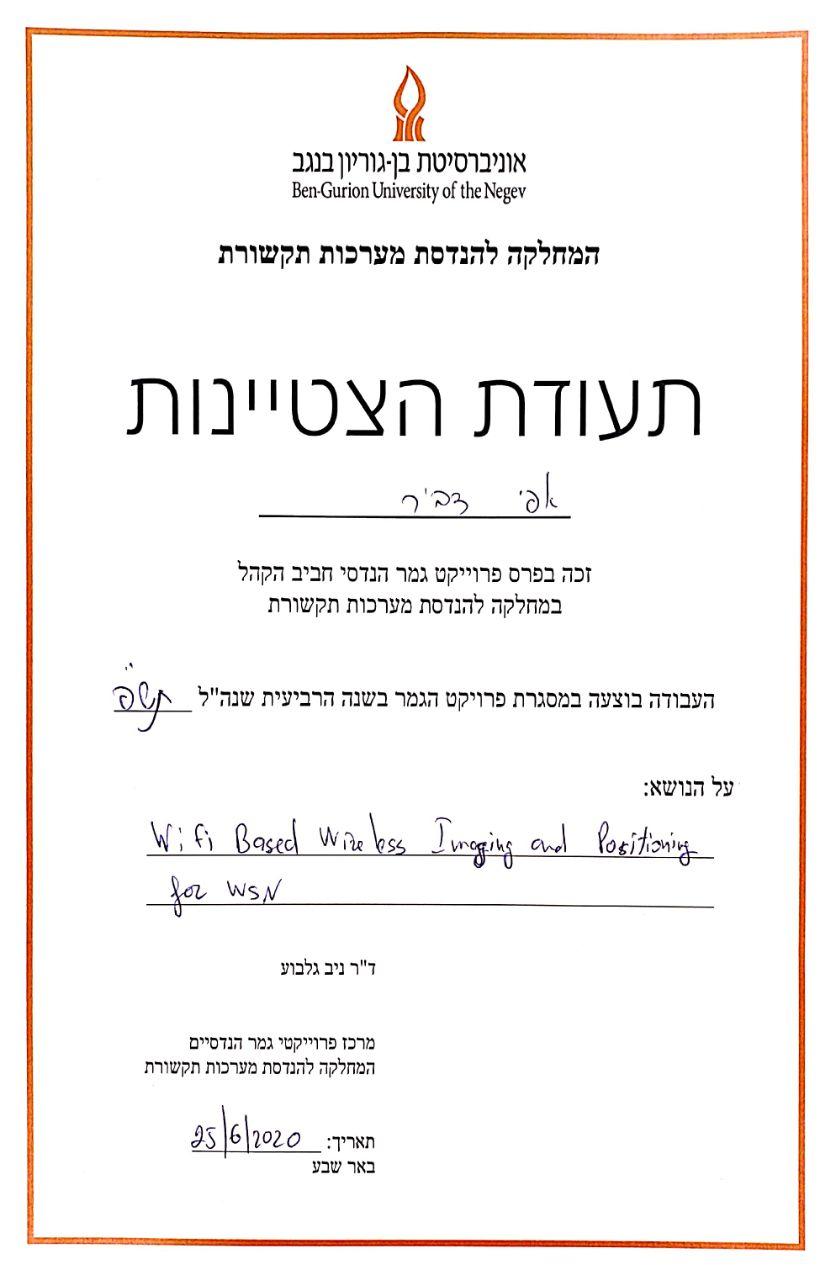 אוניברסיטת בן-גוריון בנגב
Ben-Gurion University of the Negev
המחלקה להנדסת מערכות תקשורת
תעודת הצטיינות
אפי דביר
זכה בפרס פרוייקט גמר הנדסי חביב הקהל
במחלקה להנדסת מערכות תקשורת
העבודה בוצעה במסגרת פרויקט הגמר בשנה הרביעית שנה"ל תש"פ
על הנושא:
Wifi Based Wireless Imaging and Positioning
for WSN
ד"ר ניב גלבוע
מרכז פרוייקטי גמר הנדסיים
המחלקה להנדסת מערכות תקשורת
תאריך: 25/6/2020
באר שבע